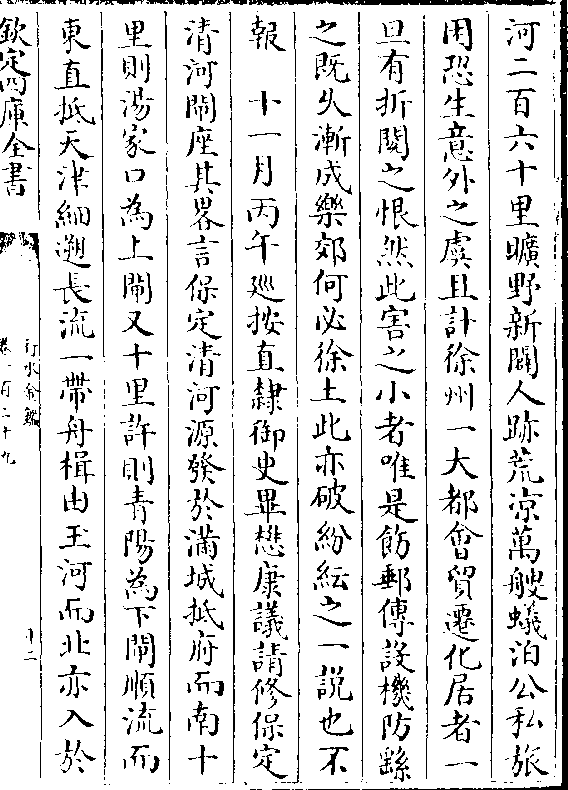 河二百六十里曠野新闢人跡荒凉萬艘蟻泊公私旅
困恐生意外之虞且計徐州一大都會貿遷化居者一
旦有折閱之恨然此害之小者唯是飭郵傳設機防繇
之既久漸成樂郊何必徐土此亦破紛紜之一說也不
報　十一月丙午廵按直隸御史畢懋康議請修保定
清河閘座其畧言保定清河源發於滿城抵府而南十
里則湯家口為上閘又十里許則青陽為下閘順流而
東直抵天津細遡長流一帶舟楫由玉河而北亦入於
欽定四庫全書
行水金鑑
卷一百二十九
十二